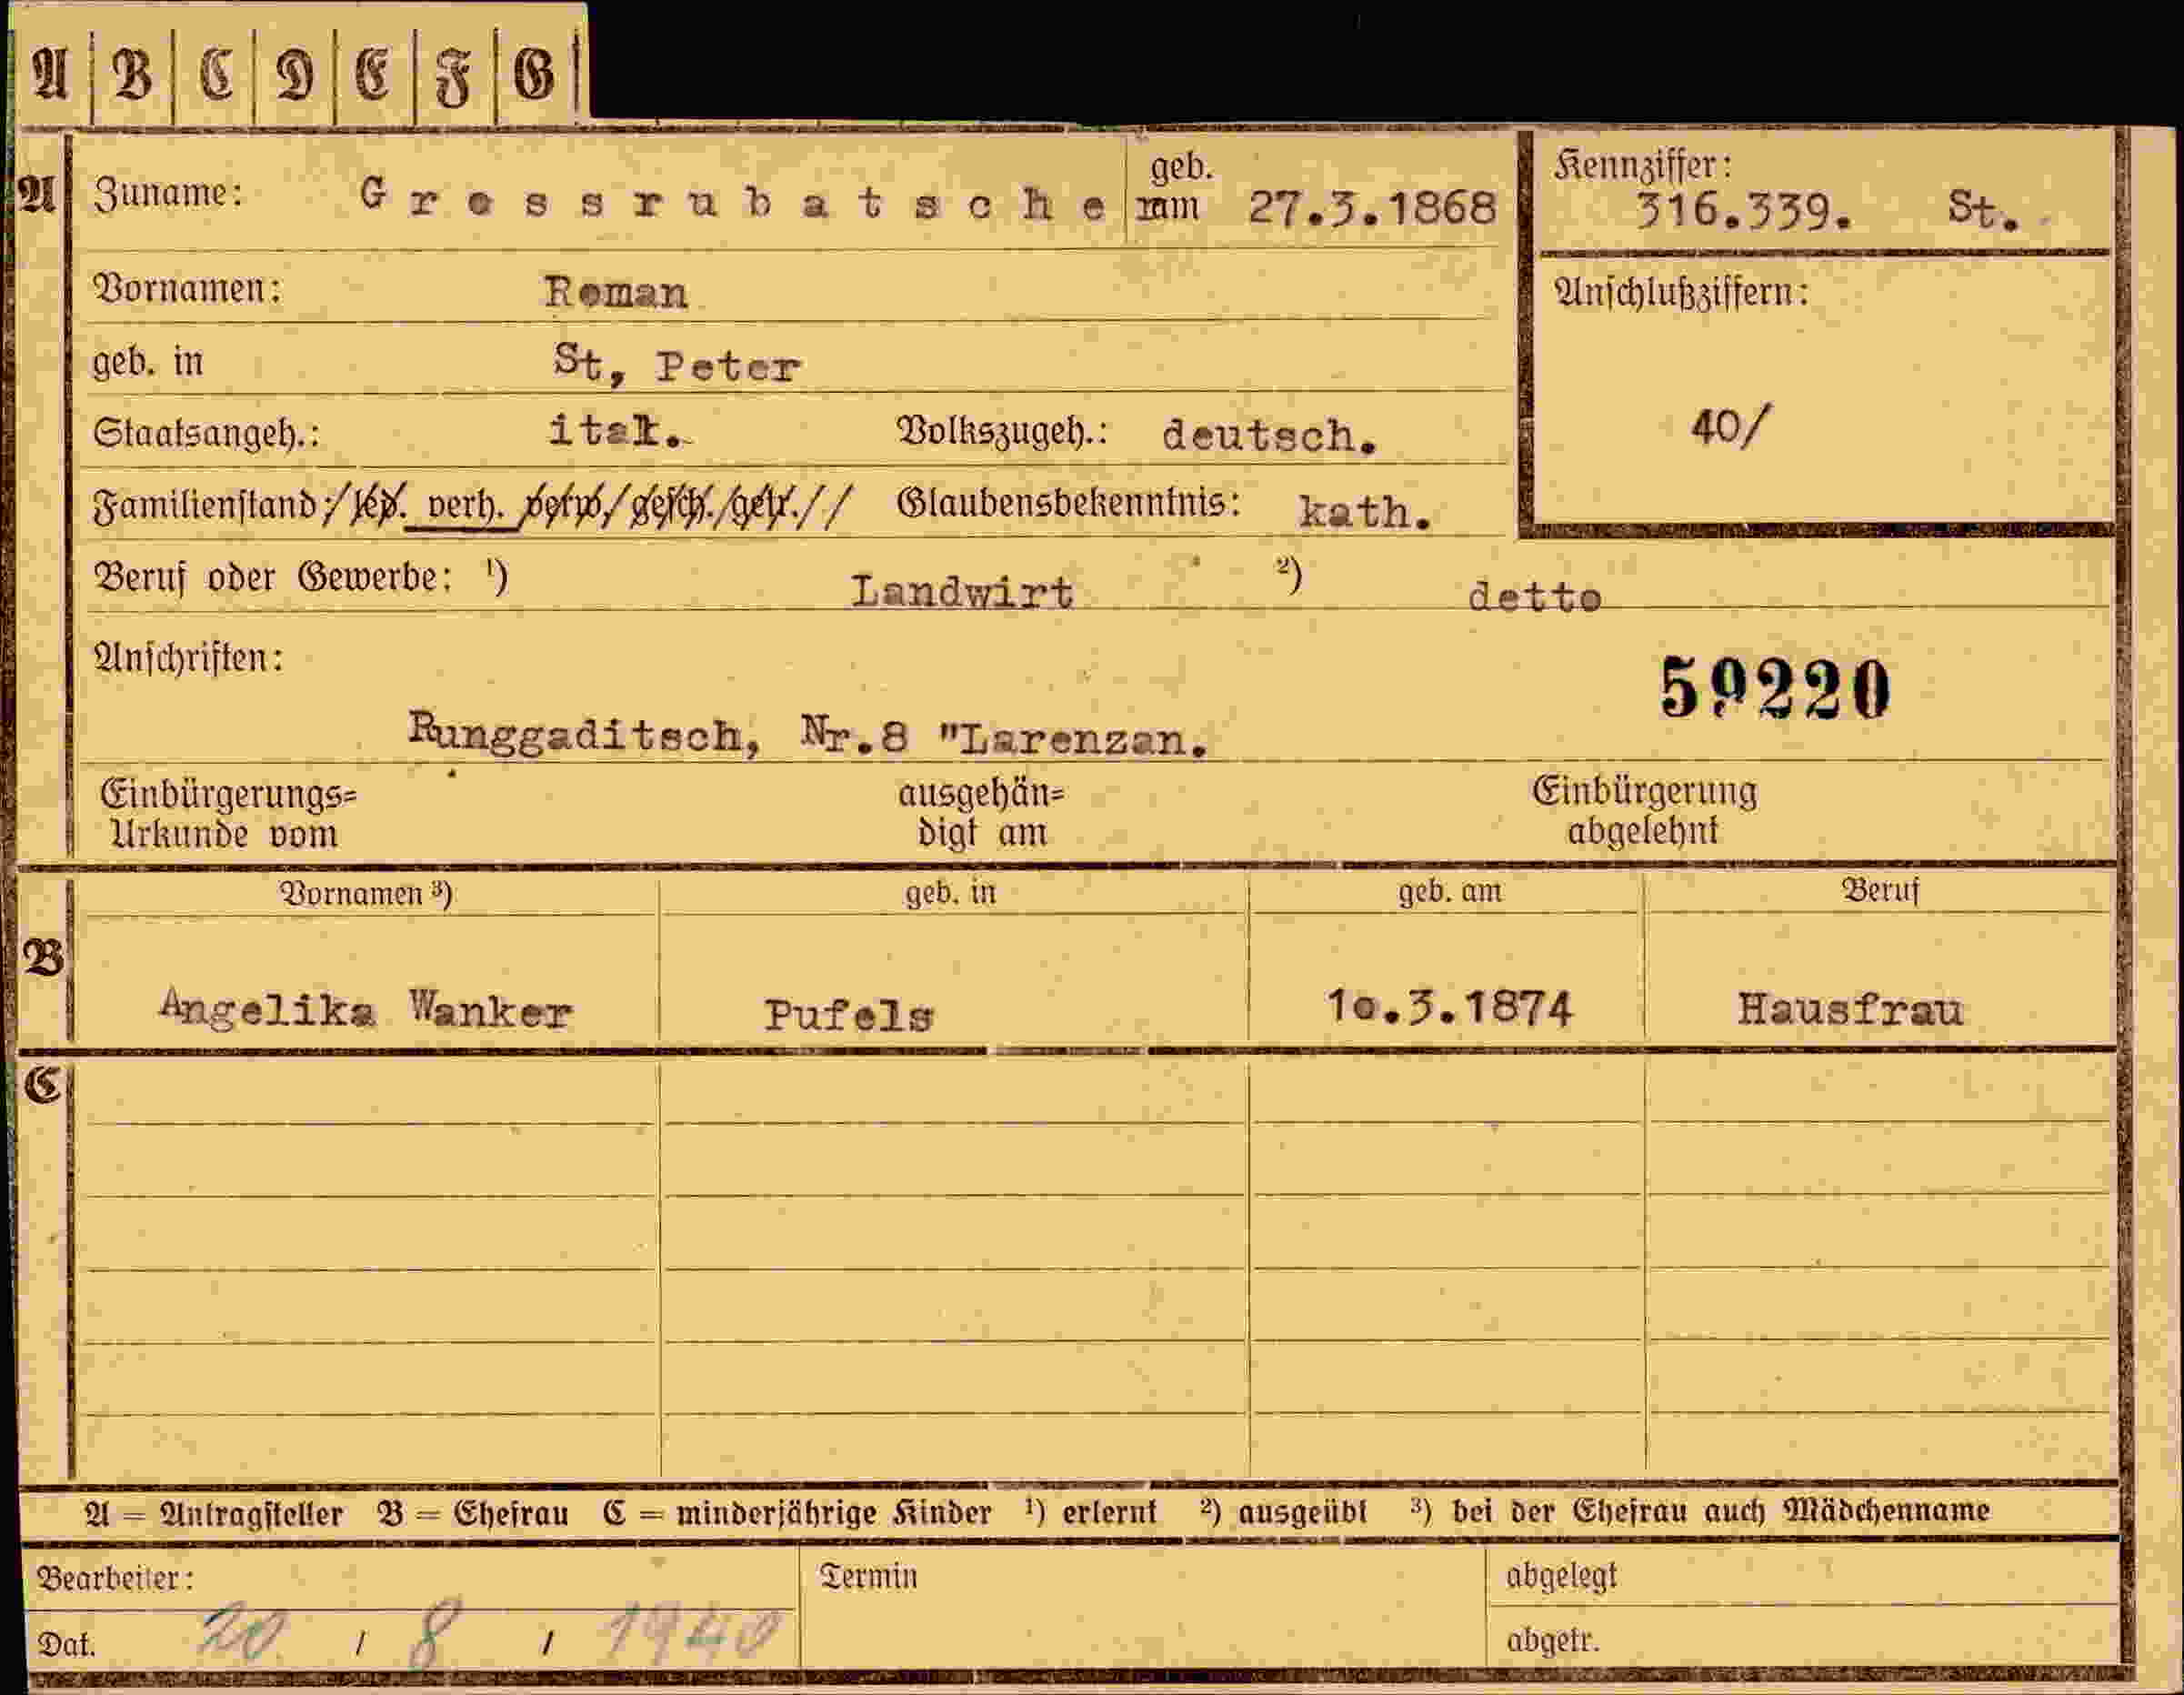 A B C D E F G
A Zuname: Grossrubatsche geb. am 27.3.1868 Kennziffer: 316.339. St.
Vornamen: Roman Anschlußziffern:
geb. in St, Peter
Staatsangeh.: ital. Volkszugeh.: deutsch. 40/
Familienstand: led. verh. verw. gesch. getr. Glaubensbekenntnis: kath.
Beruf oder Gewerbe: ¹) Landwirt ²) detto
Anschriften: 59220
Runggaditsch, Nr.8 "Larenzan.
Einbürgerungs= ausgehän= Einbürgerung
Urkunde vom digt am abgelehnt
Vornamen ³) geb. in geb. am Beruf
B
Angelika Wanker Pufels 10.3.1874 Hausfrau
C
A = Antragsteller B = Ehefrau C = minderjährige Kinder ¹) erlernt ²) ausgeübt ³) bei der Ehefrau auch Mädchenname
Bearbeiter: Termin abgelegt
Dat. 20 / 8 / 1940 abgetr.